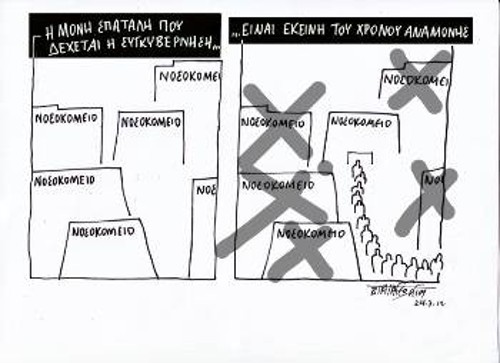 Η ΜΟΝΗ ΣΠΑΤΑΛΗ ΠΟΥ
ΔΕΧΕΤΑΙ Η ΣΥΓΚΥΒΕΡΝΗΣΗ...
ΝΟΣΟΚΟΜΕΙ
ΝΟΣΟΚΟΜΕΙΟ
ΝΟΣΟΚΟΜΕΙΟ
ΝΟΣΟΚΟΜΕΙΟ
ΝΟΣ
ΝΟΣΟΚΟΜΕΙΟ
...ΕΙΝΑΙ ΕΚΕΙΝΗ ΤΟΥ ΧΡΟΝΟΥ ΑΝΑΜΟΝΗΣ
ΝΟΣΟΚΟΜΕΙ
ΝΟΣΟΚΟΜΕΙΟ
ΝΟΣΟΚΟΜΕΙΟ
ΝΟΣΟΚΟΜΕΙΟ
ΝΟΣ
ΝΟΣΟΚΟΜΕΙΟ